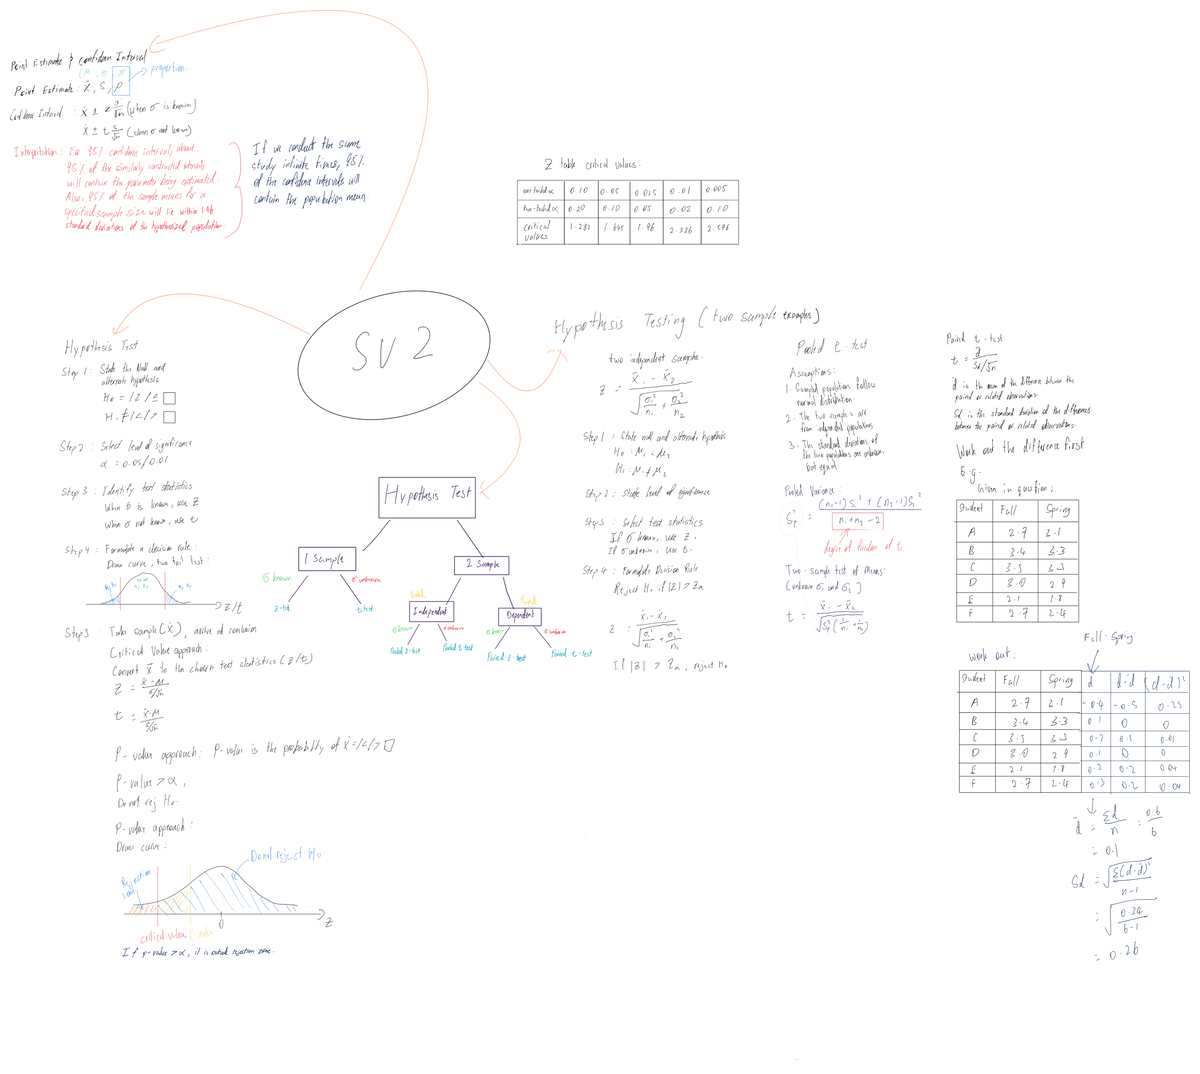 Point Estimate & Confidence Interval
(μ, σ, π)
proportion
Point Estimate : x̄, s, p
Confidence Interval : x̄ ± z σ/√n (when σ is known)
x̄ ± t s/√n (when σ not known)
Interpretation : For 95% confidence interval, about
95% of the similarly constructed intervals
will contain the parameter being estimated.
Also, 95% of the sample means for a
specified sample size will lie within 1.96
standard deviations of the hypothesized population.
If we conduct the same
study infinite times, 95%
of the confidence intervals will
contain the population mean.
Z table critical values.
one-tailed α 0.10 0.05 0.025 0.01 0.005
two-tailed α 0.20 0.10 0.05 0.02 0.10
critical values 1.282 1.645 1.96 2.326 2.576
SV2
Hypothesis Test
Step 1 : State the Null and
alternate hypothesis
H₀ = / ≥ / ≤
H₁ ≠ / < / >
Step 2 : Select level of significance
α = 0.05/0.01
Step 3 : Identify test statistics
When σ is known, use Z
When σ not know, use t
Step 4 : Formulate a decision rule:
Draw curve, two tail test :
z/t
Step 5 : Take sample (x̄), arrive at conclusion
Critical Value approach:
Convert x̄ to the chosen test statistics (z/t)
Z = x̄ - μ / σ/√n
t = x̄ - μ / s/√n
P-value approach: P-value is the probability of x̄ = / < / >
P-value > α,
Do not rej H₀.
P-value approach :
Draw curve :
Rejection zone
Do not reject H₀
0
Z
critical value
P-value
If p-value > α, it is outside rejection zone.
Hypothesis Test
1 Sample
2 Sample
σ known
σ unknown
z-test
t-test
Pooled
Independent
Paired
Dependent
σ known
σ unknown
σ known
σ unknown
Pooled z-test
Pooled t test
Paired z-test
Paired t-test
Hypothesis Testing (two sample examples)
two independent samples.
z = x̄₁ - x̄₂ / √(σ₁²/n₁ + σ₂²/n₂)
Step 1 : State null and alternate hypothesis
H₀ : μ₁ = μ₂
H₁ : μ₁ ≠ μ₂
Step 2 : State level of significance
Step 3 : Select test statistics
If σ known, use Z.
If σ unknown, use t.
Step 4 : Formulate Division Rule
Reject H₀ if |Z| > Zα
z = x̄₁ - x̄₂ / √(σ₁²/n₁ + σ₂²/n₂)
If |Z| > Zα, reject H₀
Pooled t-test
Assumptions :
1. Sampled populations follow
normal distribution.
2. The two samples are
from independent populations
3. The standard deviations of
the two populations are unknown,
but equal.
Pooled Variance :
Sp² = (n₁-1)S₁² + (n₂-1)S₂² / n₁+n₂-2
degree of freedom of t
Two-sample test of Means :
(unknown σ₁ and σ₂)
t = x̄₁ - x̄₂ / √(Sp²(1/n₁ + 1/n₂))
Paired t-test
t = d̄ / Sd/√n
d̄ is the mean of the difference between the
paired or related observations.
Sd is the standard deviation of the differences
between the paired or related observations.
Work out the difference first
E.g.
Given in question :
Student Fall Spring
A 2.7 3.1
B 3.4 3.3
C 3.5 3.3
D 3.0 2.9
E 2.1 1.8
F 2.7 2.4
Fall - Spring
Work out :
Student Fall Spring d d-d̄ (d-d̄)²
A 2.7 3.1 -0.4 -0.5 0.25
B 3.4 3.3 0.1 0 0
C 3.5 3.3 0.2 0.1 0.01
D 3.0 2.9 0.1 0 0
E 2.1 1.8 0.3 0.2 0.04
F 2.7 2.4 0.3 0.2 0.04
d̄ = Σd / n = 0.6 / 6
= 0.1
Sd = √(Σ(d-d̄)² / n-1)
= √(0.34 / 6-1)
= 0.26